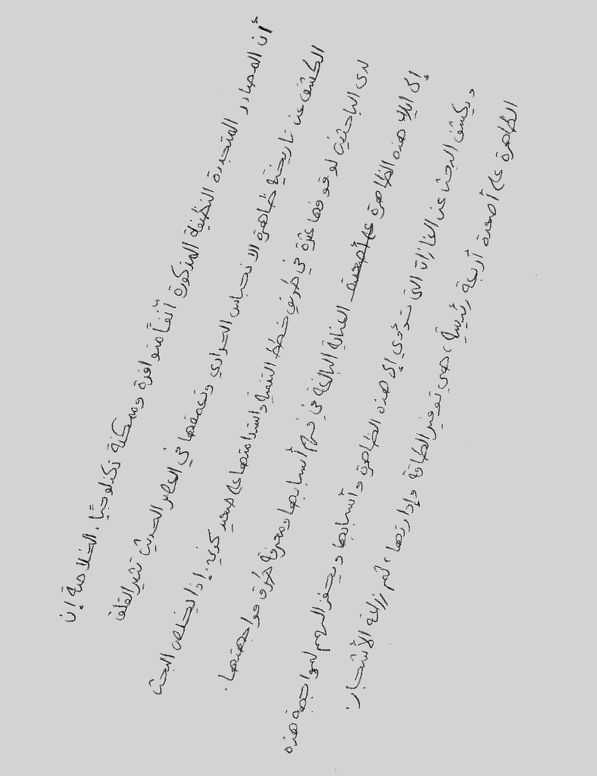 أن المصادر المتجددة النظيفة المذكورة آنفًا متوافرة وممكنة تكنولوجيًا. الخلاصة إن
الكشف عن تاريخية ظاهرة الانحباس الحراري وتعمقها في العصر الحديث تثير القلق
لدى الباحثين لوقوفها عثرة في طريق خطط التنمية واستدامتها على صعيد كونية. إذا يخلص البحث
إلى إيلاء هذه الظاهرة على أصعدة العناية البالغة في فهم أسبابها ومعرفة طرق مواجهتها.
ويكشف البحث عن الغازات التي تؤدي إلى هذه الظاهرة وأسبابها ويحفز الهمم لمواجهة هذه
الظاهرة على أصعدة أربعة رئيسية، هي توفير الطاقة وإدارتها، ثم زراعة الأشجار.